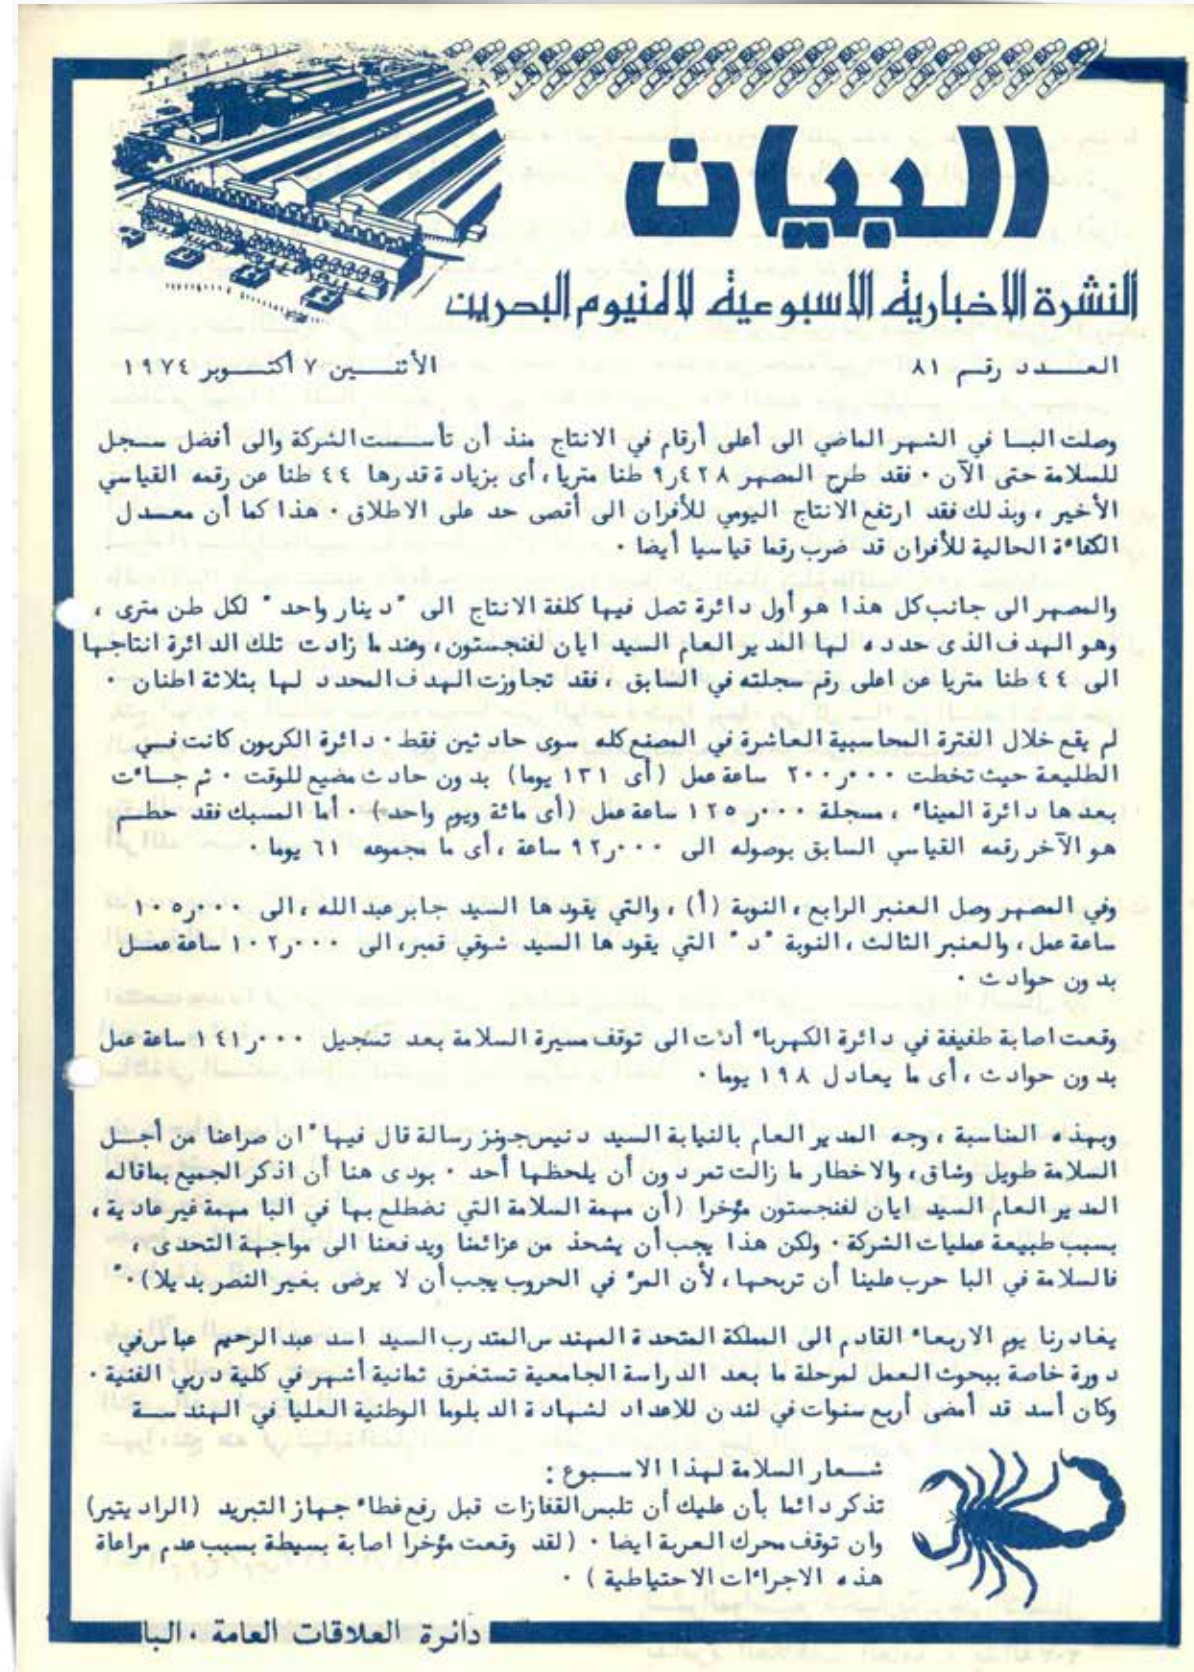 البيان
النشرة الاخبارية الاسبوعية لالمنيوم البحرين
العـــدد رقــم ٨١
الأثنـــين ٧ أكتـــوبر ١٩٧٤
وصلت البـا في الشهر الماضي الى أعلى أرقام في الانتاج منذ أن تأسست الشركة والى أفضل سـجل
للسلامة حتى الآن ٠ فقد طرح المصهر ٩٫٤٢٨ طنا متريا ، أى بزيادة قدرها ٤٤ طنا عن رقمه القياسي
الأخير ، وبذلك فقد ارتفع الانتاج اليومي للأفران الى أقصى حد على الاطلاق ٠ هذا كما أن معـدل
الكفاءة الحالية للأفران قد ضرب رقما قياسيا أيضا ٠
والمصهر الى جانب كل هذا هو أول دائرة تصل فيها كلفة الانتاج الى "دينار واحد" لكل طن مترى ،
وهو الهدف الذى حدده لها المدير العام السيد ايان لفنجستون ، وعندما زادت تلك الدائرة انتاجها
الى ٤٤ طنا متريا عن اعلى رقم سجلته في السابق ، فقد تجاوزت الهدف المحدد لها بثلاثة اطنان ٠
لم يقع خلال الفترة المحاسبية العاشرة في المصنع كله سوى حادثين فقط ٠ دائرة الكربون كانت فـي
الطليعة حيث تخطت ٢٠٠٫٠٠٠ ساعة عمل (أى ١٣١ يوما) بدون حادث مضيع للوقت ٠ ثم جـاءت
بعدها دائرة الميناء ، مسجلة ١٢٥٫٠٠٠ ساعة عمل (أى مائة ويوم واحد) ٠ أما المسبك فقد حطـم
هو الآخر رقمه القياسي السابق بوصوله الى ٩٢٫٠٠٠ ساعة ، أى ما مجموعه ٦١ يوما ٠
وفي المصهر وصل العنبر الرابع ، النوبة (أ) ، والتي يقودها السيد جابر عبدالله ، الى ١٠٥٫٠٠٠
ساعة عمل ، والعنبر الثالث ، النوبة "د" التي يقودها السيد شوقي قمبر، الى ١٠٢٫٠٠٠ ساعة عمـل
بدون حوادث ٠
وقعت اصابة طفيفة في دائرة الكهرباء أدت الى توقف مسيرة السلامة بعد تسجيل ١٤١٫٠٠٠ ساعة عمل
بدون حوادث ، أى ما يعادل ١٩٨ يوما ٠
وبهذه المناسبة ، وجه المدير العام بالنيابة السيد دنيس جونز رسالة قال فيها "ان صراعنا من أجـل
السلامة طويل وشاق، والاخطار ما زالت تمر دون أن يلحظها أحد ٠ بودى هنا أن اذكر الجميع بماقاله
المدير العام السيد ايان لفنجستون مؤخرا (أن مهمة السلامة التي نضطلع بها في البا مهمة غير عادية ،
بسبب طبيعة عمليات الشركة ٠ ولكن هذا يجب أن يشحذ من عزائمنا ويدفعنا الى مواجهة التحدى ،
فالسلامة في البا حرب علينا أن نربحها، لأن المرء في الحروب يجب أن لا يرضى بغير النصر بديلا) ٠"
يغادرنا يوم الاربعاء القادم الى المملكة المتحدة المهندس المتدرب السيد اسد عبدالرحيم عباس في
دورة خاصة ببحوث العمل لمرحلة ما بعد الدراسة الجامعية تستغرق ثمانية أشهر في كلية دربي الفنية ٠
وكان أسد قد أمضى أربع سنوات في لندن للاعداد لشهادة الدبلوما الوطنية العليا في الهندسـة
شـعار السلامة لهذا الاسـبوع :
تذكر دائما بأن عليك أن تلبس القفازات قبل رفع غطاء جهاز التبريد (الراديتير)
وان توقف محرك العربة ايضا ٠ (لقد وقعت مؤخرا اصابة بسيطة بسبب عدم مراعاة
هذه الاجراءات الاحتياطية ) ٠
دائرة العلاقات العامة ٠ البا